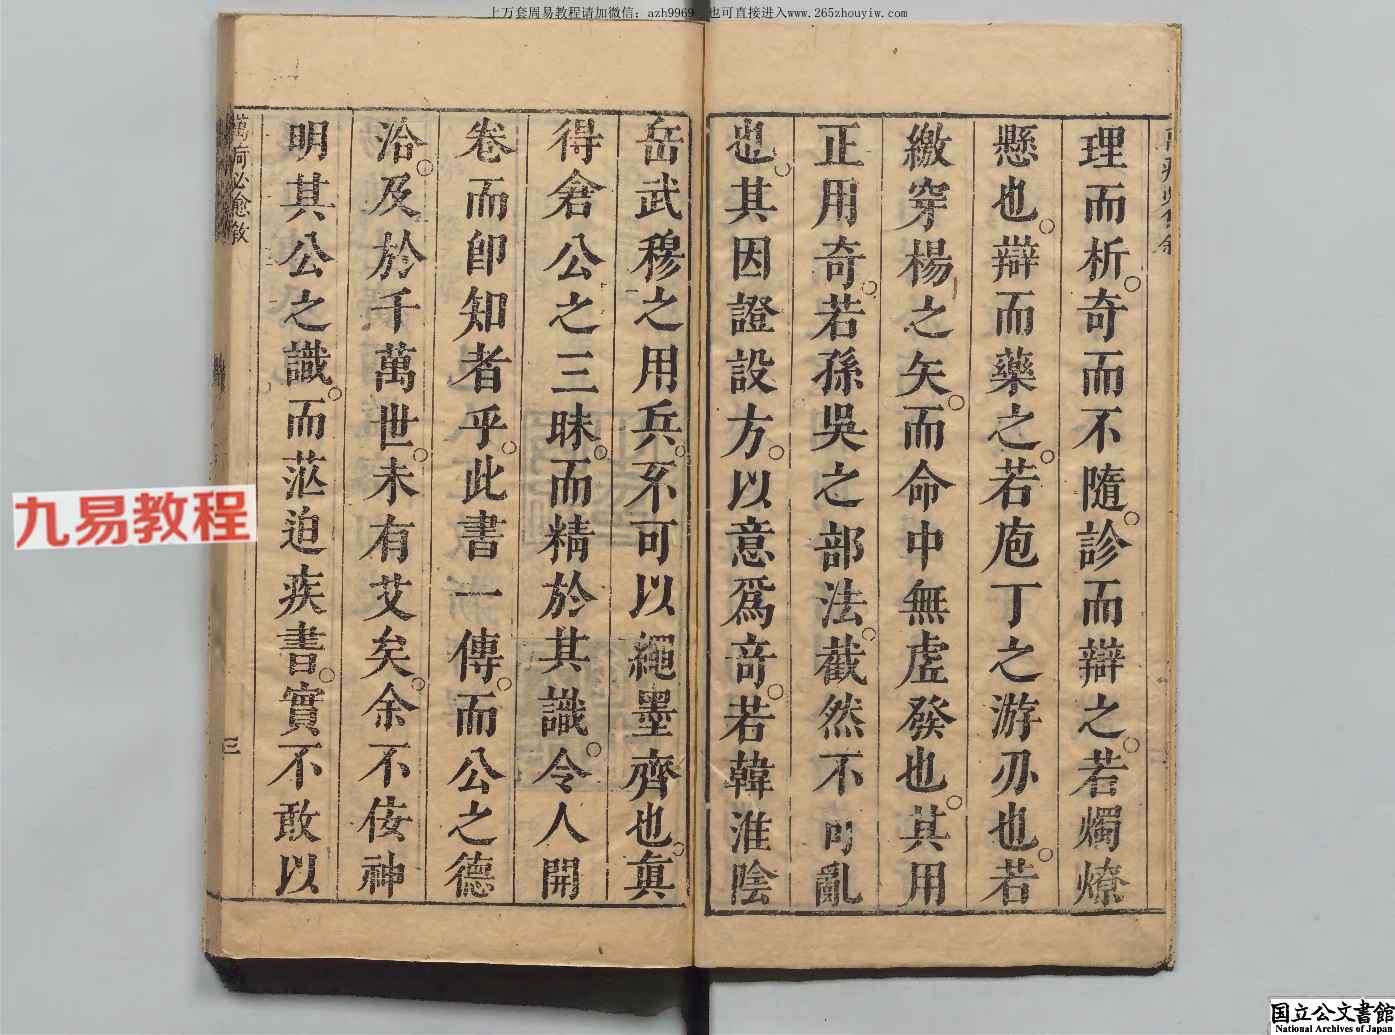 上万套周易教程请加微信：azh9969 也可直接进入www.265zhouyiw.com
理而析。奇而不隨。診而辯之。若燭燎
懸也。辯而藥之。若庖丁之游刃也。若
繳穿楊之矢。而命中無虛發也。其用
正用奇。若孫吳之部法。截然不可亂
也。其因證設方。以意爲奇。若韓淮陰
岳武穆之用兵。不可以繩墨齊也。眞
得倉公之三昧。而精於其識。令人開
卷而卽知者乎。此書一傳。而公之德
洽。及於千萬世。未有艾矣。余不佞神
明其公之識。而茫迫疾書。實不敢以
萬病必愈敘
三
九易教程
国立公文書館
National Archives of Japan